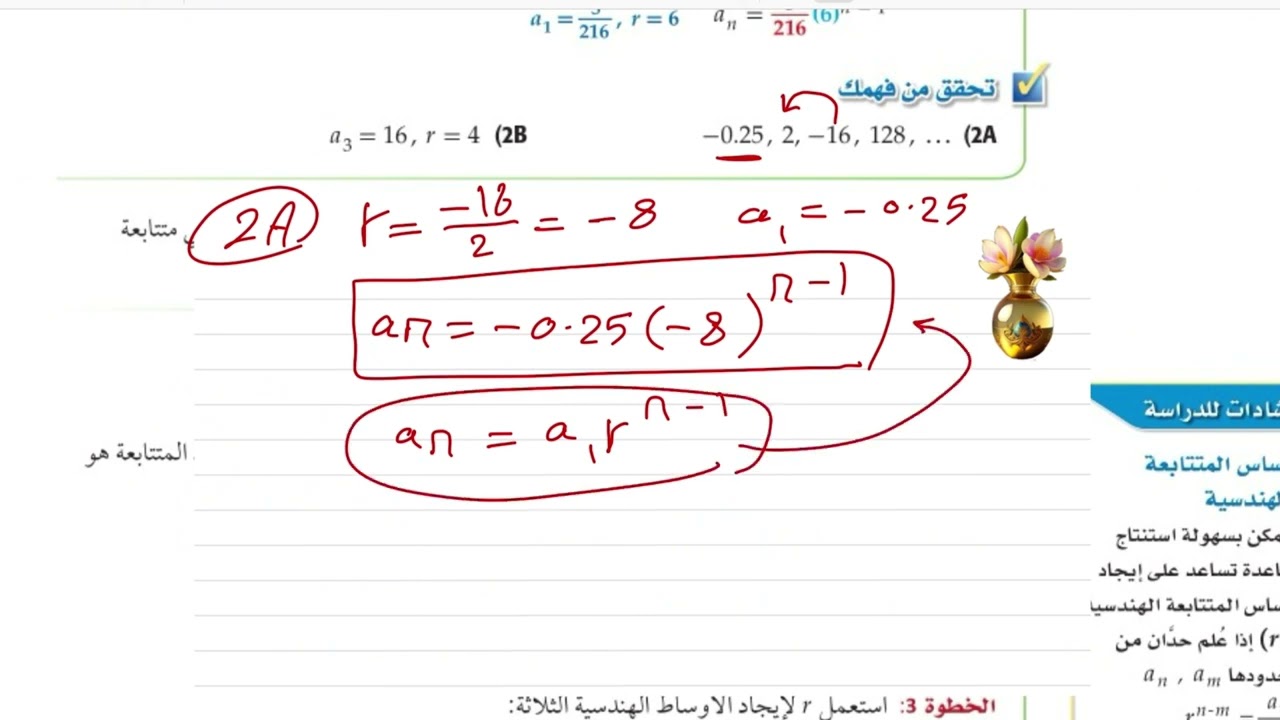 a₁ = 3/216 , r = 6 aₙ = /216 (6)ⁿ⁻¹
تحقق من فهمك
−0.25, 2, −16, 128, … (2A
a₃ = 16, r = 4 (2B
2A r = −16/2 = −8 a₁ = −0.25
متتابعة
an = −0.25(−8)ⁿ⁻¹
an = a₁rⁿ⁻¹
المتتابعة هو
ادات للدراسة
ساس المتتابعة
لهندسية
مكن بسهولة استنتاج
اعدة تساعد على إيجاد
ساس المتتابعة الهندسية
(r) إذا عُلم حدَّان من
دودها aₙ , aₘ
rⁿ⁻ᵐ =
الخطوة 3: استعمل r لإيجاد الأوساط الهندسية الثلاثة: